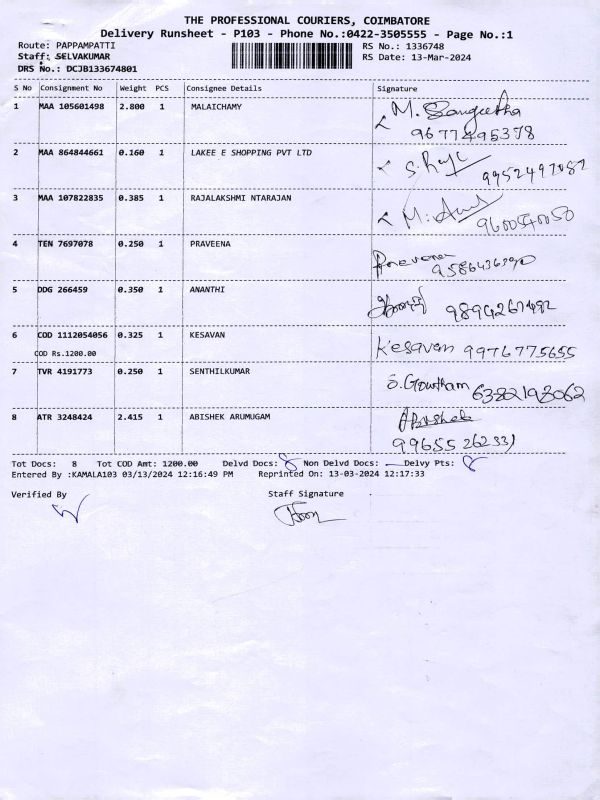 THE PROFESSIONAL COURIERS, COIMBATORE
Delivery Runsheet - P103 - Phone No.:0422-3505555 - Page No.:1
Route: PAPPAMPATTI RS No.: 1336748
Staff: SELVAKUMAR RS Date: 13-Mar-2024
DRS No.: DCJB133674801
S No Consignment No Weight PCS Consignee Details Signature
1 MAA 105601498 2.800 1 MALAICHAMY M. Sangeetha
9677495378
2 MAA 864844661 0.160 1 LAKEE E SHOPPING PVT LTD
9952497082
3 MAA 107822835 0.385 1 RAJALAKSHMI NTARAJAN
9600540050
4 TEN 7697078 0.250 1 PRAVEENA Praveena
9586436390
5 DDG 266459 0.350 1 ANANTHI
6 COD 1112054056 0.325 1 KESAVAN Kesavan 9976775655
COD Rs.1200.00
7 TVR 4191773 0.250 1 SENTHILKUMAR S. Gowtham 6382193062
8 ATR 3248424 2.415 1 ABISHEK ARUMUGAM Abishek
9965526233
Tot Docs: 8 Tot COD Amt: 1200.00 Delvd Docs: 8 Non Delvd Docs: — Delvy Pts: 8
Entered By :KAMALA103 03/13/2024 12:16:49 PM Reprinted On: 13-03-2024 12:17:33
Verified By Staff Signature